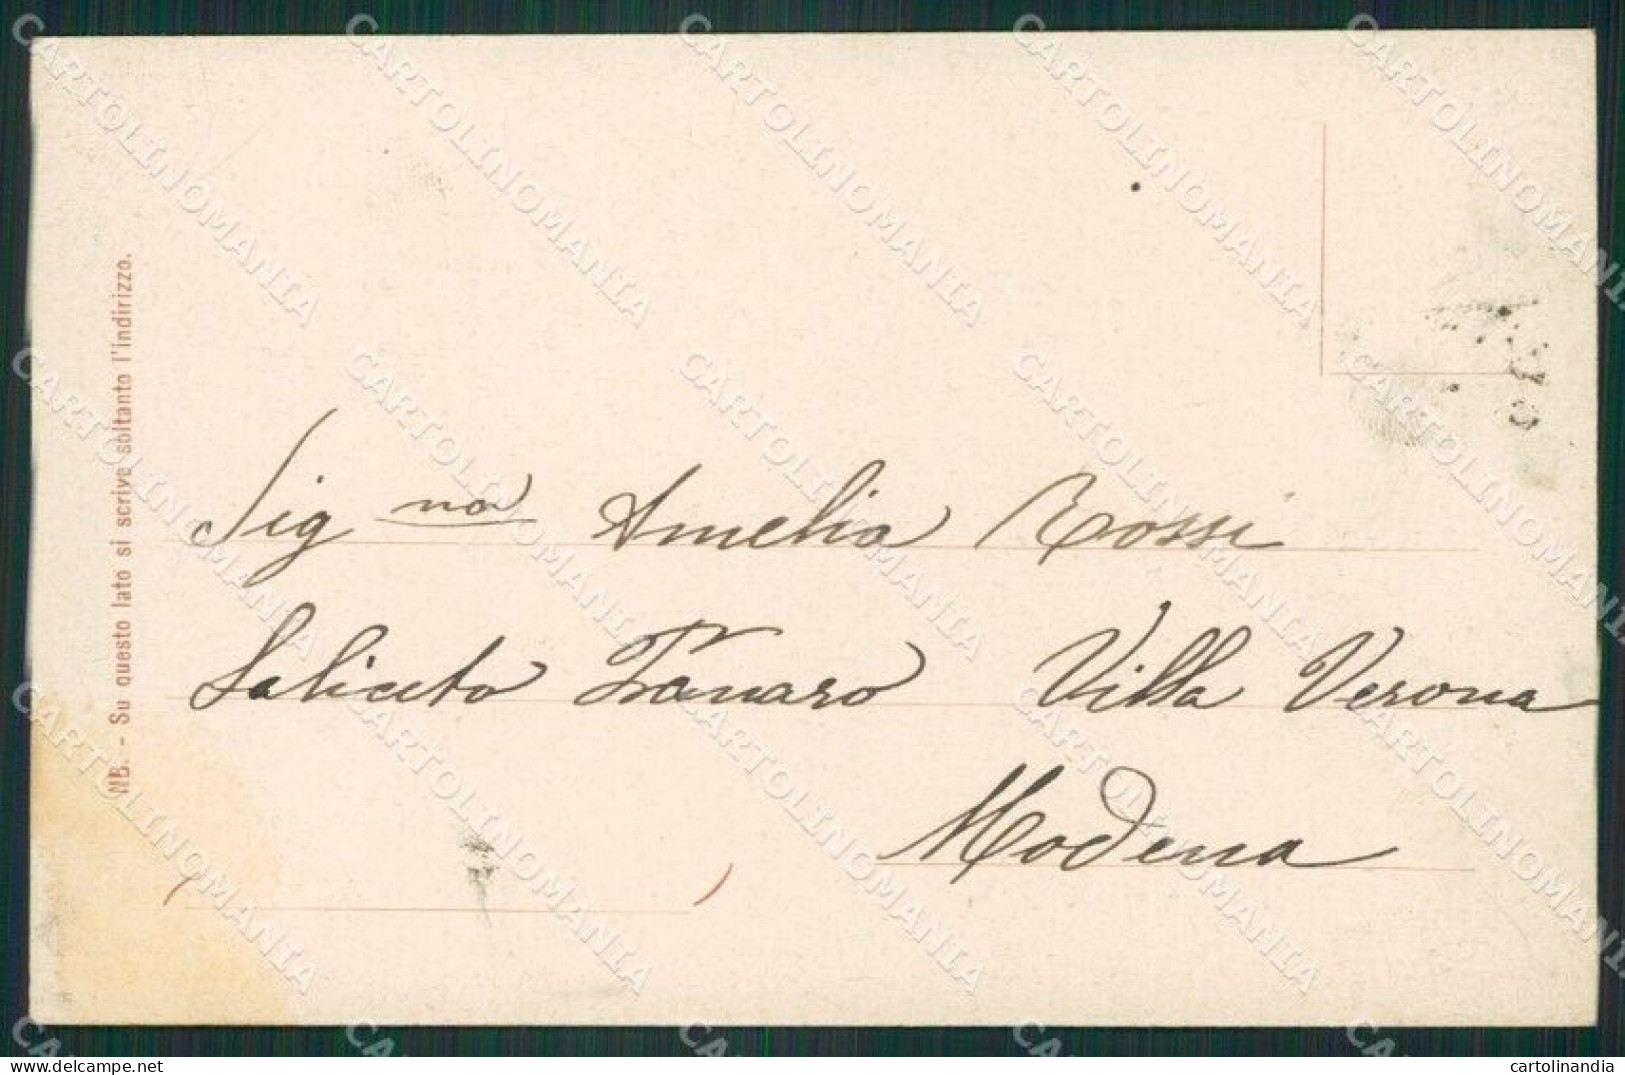 NB. - Su questo lato si scrive soltanto l'indirizzo.
Sig na Amelia Rossi
Saliceto Panaro Villa Verona
Modena
CARTOLINOMANIA
cartolinandia